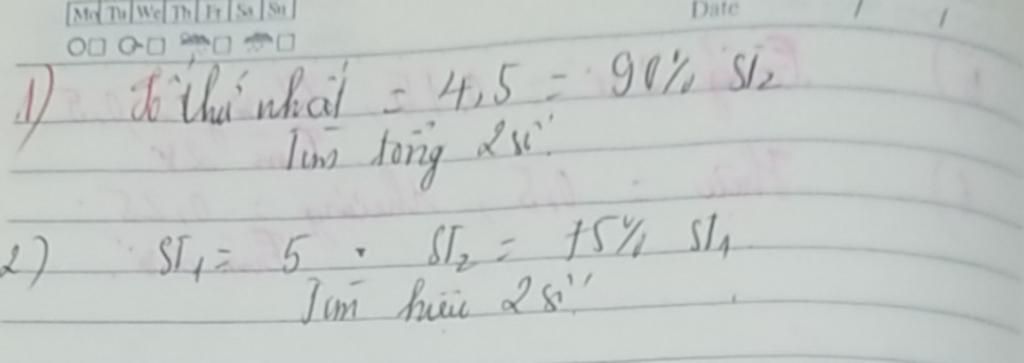 Mo Tu We Th Fr Sa Su
Date / /
1) Số thứ nhất = 4,5 = 90% ST2
Tìm tổng 2 số.
2) ST1 = 5 . ST2 = 75% ST1
Tìm hiệu 2 số